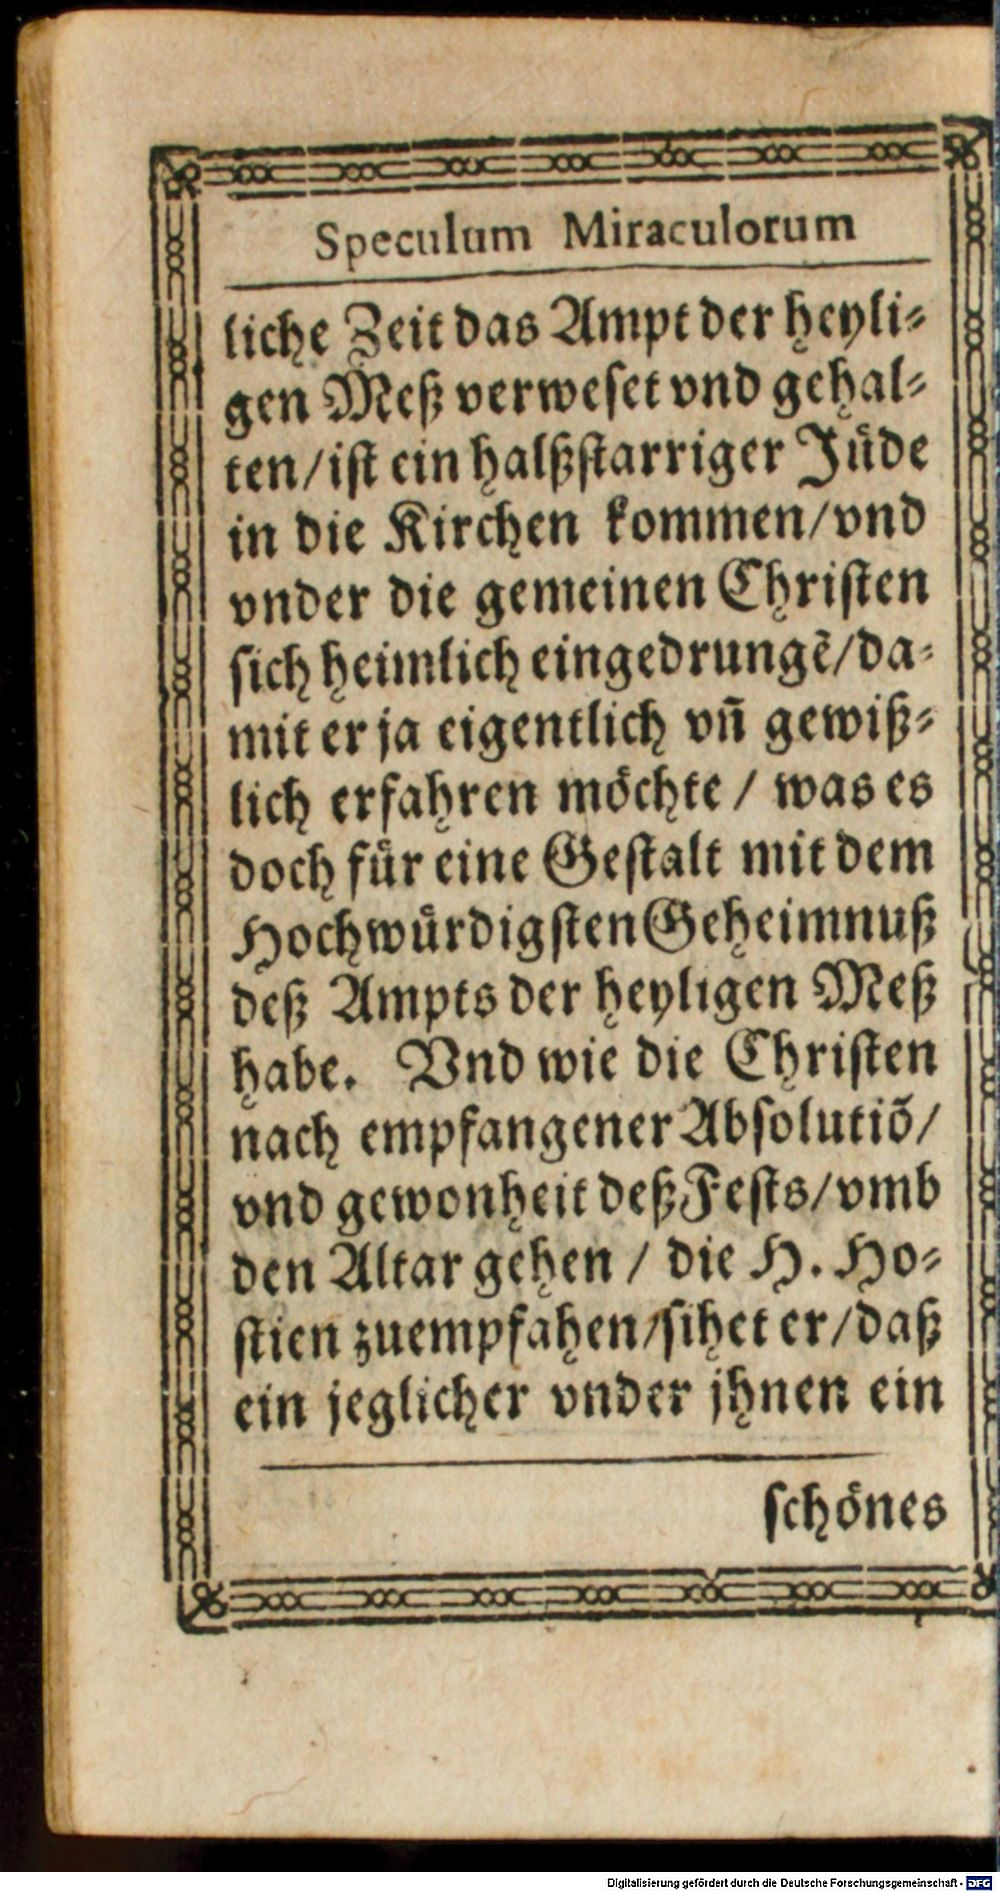 Speculum Miraculorum
liche Zeit das Ampt der heyli⸗
gen Meß verweset vnd gehal⸗
ten/ist ein halßstarriger Jüde
in die Kirchen kommen/vnd
vnder die gemeinen Christen
sich heimlich eingedrungē/da⸗
mit er ja eigentlich vñ gewiß⸗
lich erfahren möchte / was es
doch für eine Gestalt mit dem
Hochwürdigsten Geheimnuß
deß Ampts der heyligen Meß
habe. Vnd wie die Christen
nach empfangener Absolutiō/
vnd gewonheit deß Fests/vmb
den Altar gehen / die H. Ho⸗
stien zuempfahen/sihet er/daß
ein jeglicher vnder jhnen ein
schönes
Digitalisierung gefördert durch die Deutsche Forschungsgemeinschaft - DFG